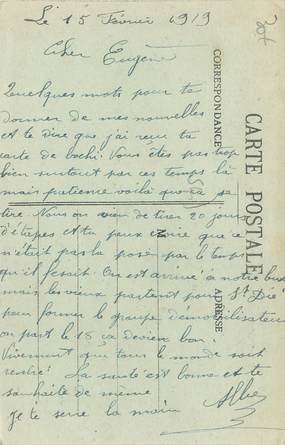 Le 15 Février 1919
Cher Eugène
Quelques mots pour te
donner de mes nouvelles
et te dire que j'ai reçu ta
carte de bochi. Vous êtes pas trop
bien surtout par ces temps là
mais patience voilà que ça se
tire Nous on vien de tirer 20 jours
d'étapes et tu peux croire que ce
n'était pas la pose par le temps
qu'il fesait. On est arrivé à notre but
mais les vieux partent pour St Dié
pour former le groupe démobilisateur
on part le 18 ça devien bon.
Vivement que tous le monde soit
rentré! La santé est bonne et te
souhaite de même
Je te serre la main
CARTE POSTALE
CORRESPONDANCE
ADRESSE
M